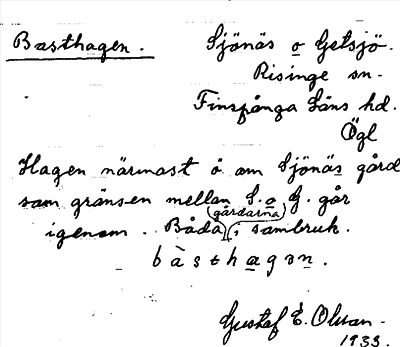 Basthagen. Sjönäs o Getsjö.
Risinge sn.
Finspånga Läns hd.
Ögl
Hagen närmast å om Sjönäs gård
som gränsen mellan S. o G. går
igenom. Båda (gårdarna) i sambruk.
bàsthagən.
Gustaf E. Olsson.
1933.